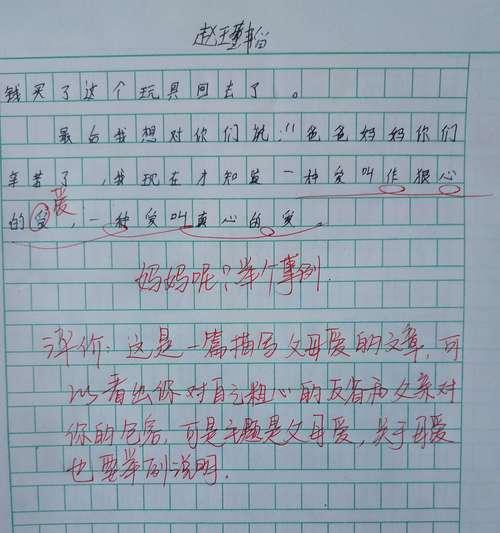 赵王瑾韬
钱买了这个玩具回去了。
最后我想对你们说:“爸爸妈妈你们
辛苦了,我现在才知道一种爱叫作狠心
的爱,一种爱叫真心的爱。
爱
妈妈呢?举个事例.
评价:这是一篇描写父母爱的文章,可
以看出你对自己粗心的反省和父亲对
你的包容,可是主题是父母爱,关于母爱
也要举例说明.